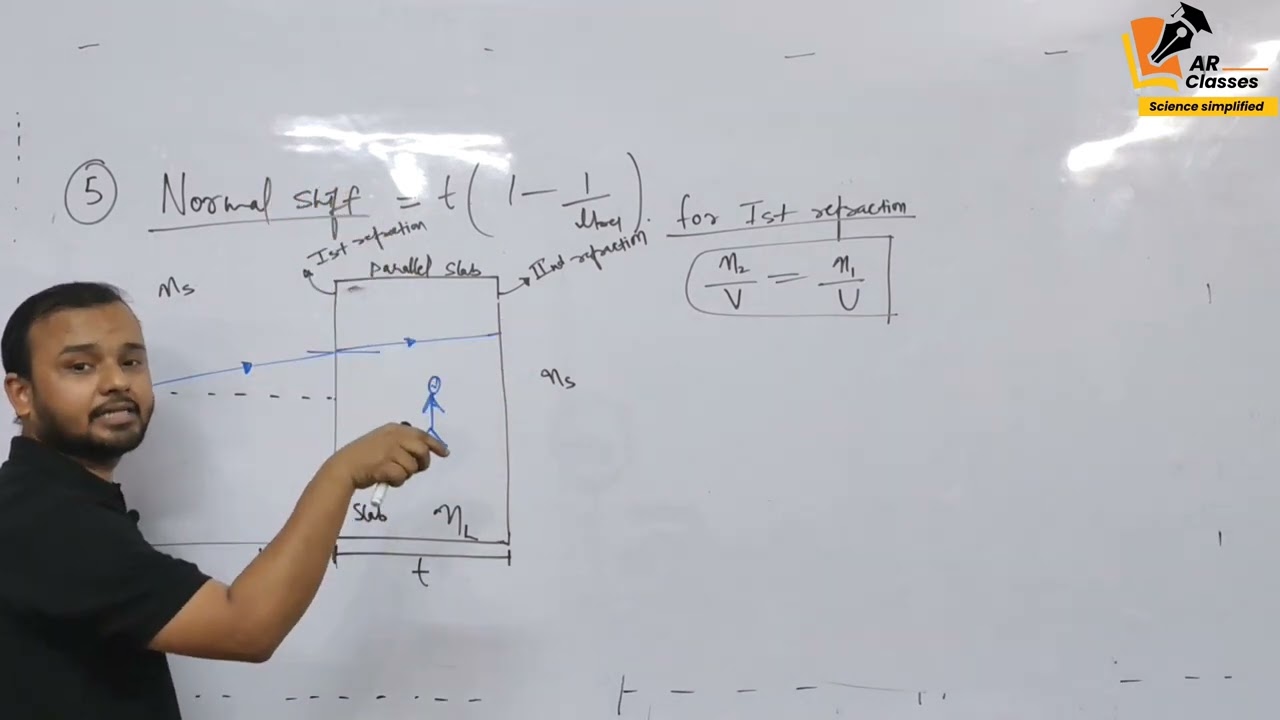 AR
Classes
Science simplified
5 Normal shift = t(1 - 1/μrel).
for Ist refraction
n₂/V = n₁/U
Ist refraction
parallel slab
IInd refraction
ns
ns
slab ηL
t